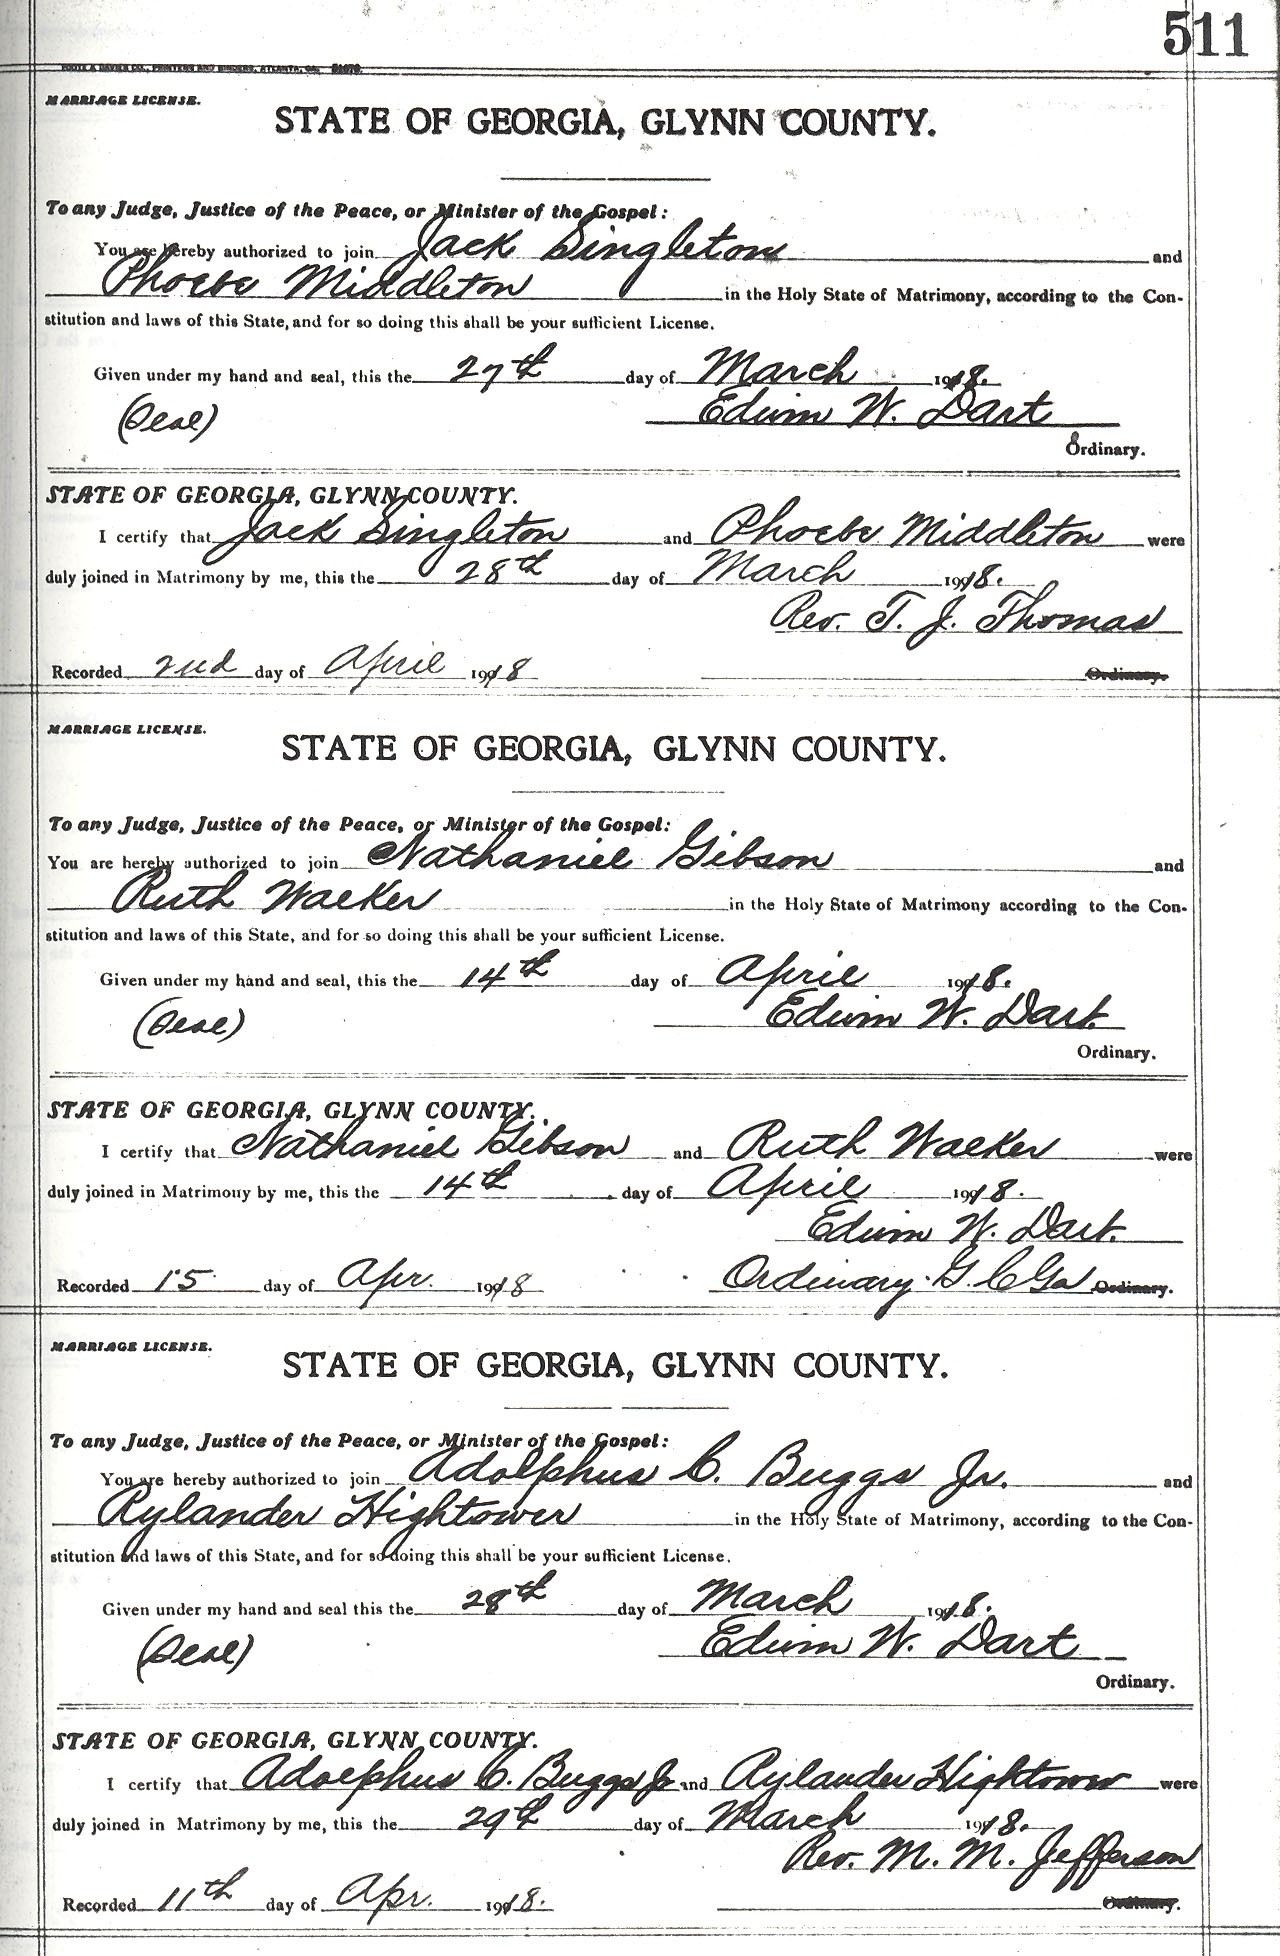 511
FOOTE & DAVIES CO., PRINTERS AND BINDERS, ATLANTA, GA.
MARRIAGE LICENSE.
STATE OF GEORGIA, GLYNN COUNTY.
To any Judge, Justice of the Peace, or Minister of the Gospel:
You are hereby authorized to join Jack Singleton and
Phoebe Middleton in the Holy State of Matrimony, according to the Con-
stitution and laws of this State, and for so doing this shall be your sufficient License.
Given under my hand and seal, this the 27th day of March 1918.
(Seal) Edwin W. Dart
Ordinary.
STATE OF GEORGIA, GLYNN COUNTY.
I certify that Jack Singleton and Phoebe Middleton were
duly joined in Matrimony by me, this the 28th day of March 1918.
Rev. T. J. Thomas
Recorded 2nd day of April 1918 Ordinary.
MARRIAGE LICENSE.
STATE OF GEORGIA, GLYNN COUNTY.
To any Judge, Justice of the Peace, or Minister of the Gospel:
You are hereby authorized to join Nathaniel Gibson and
Ruth Walker in the Holy State of Matrimony according to the Con-
stitution and laws of this State, and for so doing this shall be your sufficient License.
Given under my hand and seal, this the 14th day of April 1918.
(Seal) Edwin W. Dart.
Ordinary.
STATE OF GEORGIA, GLYNN COUNTY.
I certify that Nathaniel Gibson and Ruth Walker were
duly joined in Matrimony by me, this the 14th day of April 1918.
Edwin W. Dart.
Recorded 15 day of Apr. 1918 Ordinary. G. C Ga Ordinary.
MARRIAGE LICENSE.
STATE OF GEORGIA, GLYNN COUNTY.
To any Judge, Justice of the Peace, or Minister of the Gospel:
You are hereby authorized to join Adolphus C. Buggs Jr. and
Rylander Hightower in the Holy State of Matrimony, according to the Con-
stitution and laws of this State, and for so doing this shall be your sufficient License.
Given under my hand and seal this the 28th day of March 1918.
(Seal) Edwin W. Dart
Ordinary.
STATE OF GEORGIA, GLYNN COUNTY.
I certify that Adolphus C. Buggs Jr and Rylander Hightower were
duly joined in Matrimony by me, this the 29th day of March 1918.
Rev. M. M. Jefferson
Recorded 11th day of Apr. 1918. Ordinary.